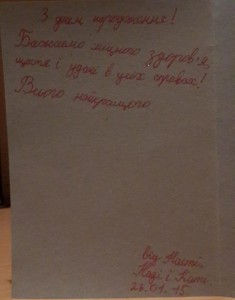 З днем народження!
Бажаємо міцного здоров'я,
щастя і удачі в усіх справах!
Всього найкращого
від Насті,
Наді і Каті
26.01.15